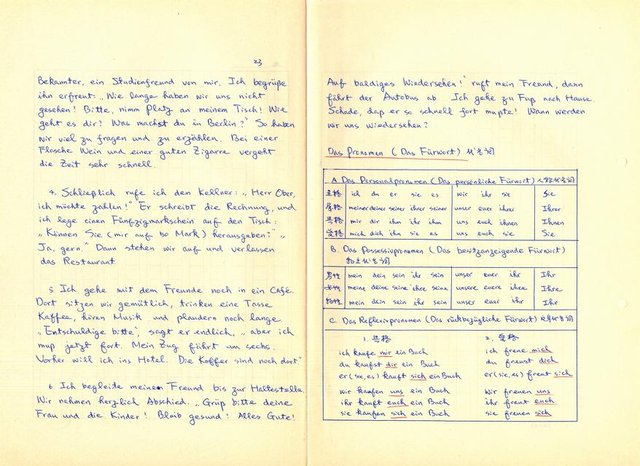 23
Bekannter, ein Studienfreund von mir. Ich begrüße
ihn erfreut: „Wie lange haben wir uns nicht
gesehen! Bitte, nimm Platz an meinem Tisch! Wie
geht es dir? Was machst du in Berlin?" So haben
wir viel zu fragen und zu erzählen. Bei einer
Flasche Wein und einer guten Zigarre vergeht
die Zeit sehr schnell.
4. Schließlich rufe ich den Kellner: „Herr Ober,
ich möchte zahlen!" Er schreibt die Rechnung, und
ich lege einen Fünfzigmarkschein auf den Tisch:
„Können Sie (mir auf 50 Mark) herausgeben?" „
Ja, gern." Dann stehen wir auf und verlassen
das Restaurant.
5. Ich gehe mit dem Freunde noch in ein Café.
Dort sitzen wir gemütlich, trinken eine Tasse
Kaffee, hören Musik und plaudern noch lange.
„Entschuldige bitte", sagt er endlich, „aber ich
muß jetzt fort. Mein Zug fährt um sechs.
Vorher will ich ins Hotel. Die Koffer sind noch dort."
6. Ich begleite meinen Freund bis zur Haltestelle.
Wir nehmen herzlich Abschied. „Grüß bitte deine
Frau und die Kinder! Bleib gesund! Alles Gute!
Auf baldiges Wiedersehen!" ruft mein Freund, dann
fährt der Autobus ab. Ich gehe zu Fuß nach Hause.
Schade, daß er so schnell fort mußte! Wann werden
wir uns Wiedersehen?
Das Pronomen (Das Fürwort) 代名詞
A. Das Personalpronomen (Das persönliche Fürwort) 人称代名詞
主格 ich du er sie es wir ihr sie Sie
属格 meiner deiner seiner ihrer seiner unser euer ihrer Ihrer
与格 mir dir ihm ihr ihm uns euch ihnen Ihnen
受格 mich dich ihn sie es uns euch sie Sie
B. Das Possessivpronomen (Das besitzanzeigende Fürwort)
代名詞
男性 mein dein sein ihr sein unser euer ihr Ihr
女性 meine deine seine ihre seine unsere euere ihre Ihre
物性 mein dein sein ihr sein unser euer ihr Ihr
C. Das Reflexivpronomen (Das rückbezügliche Fürwort) 代名詞
1. 与格 2. 受格
ich kaufe mir ein Buch ich freue mich
du kaufst dir ein Buch du freust dich
er (sie, es) kauft sich ein Buch er (sie, es) freut sich
wir kaufen uns ein Buch wir freuen uns
ihr kauft euch ein Buch ihr freut euch
sie kaufen sich ein Buch sie freuen sich